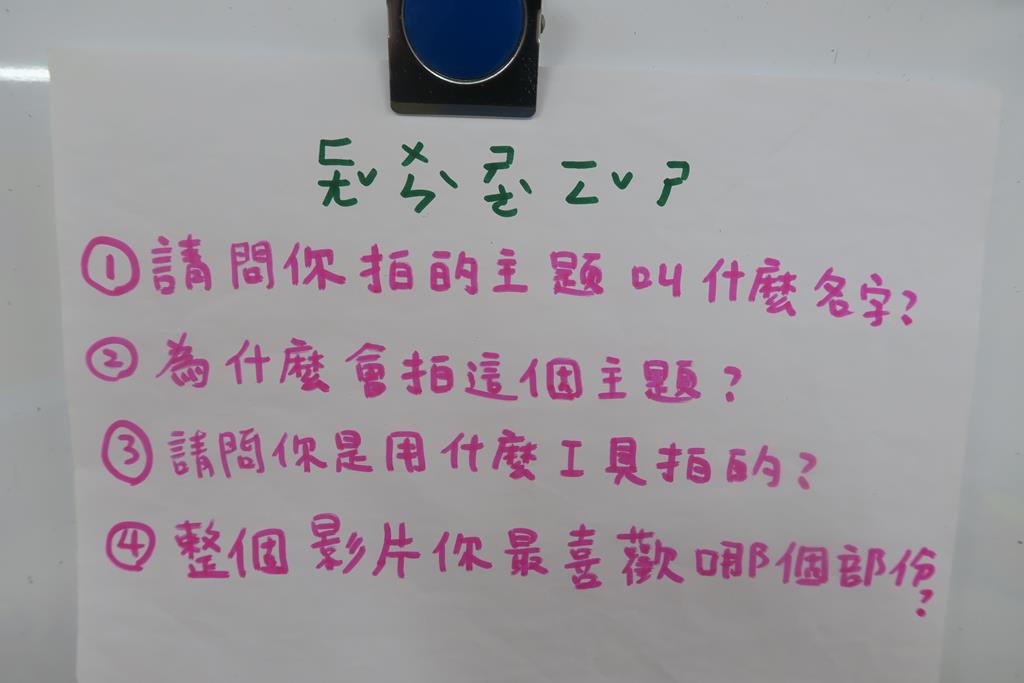 ㄈㄤˇ ㄨㄣˋ ㄕㄜˋ ㄧㄥˇ ㄕ
①請問你拍的主題叫什麼名字?
②為什麼會拍這個主題?
③請問你是用什麼工具拍的?
④整個影片你最喜歡哪個部份?